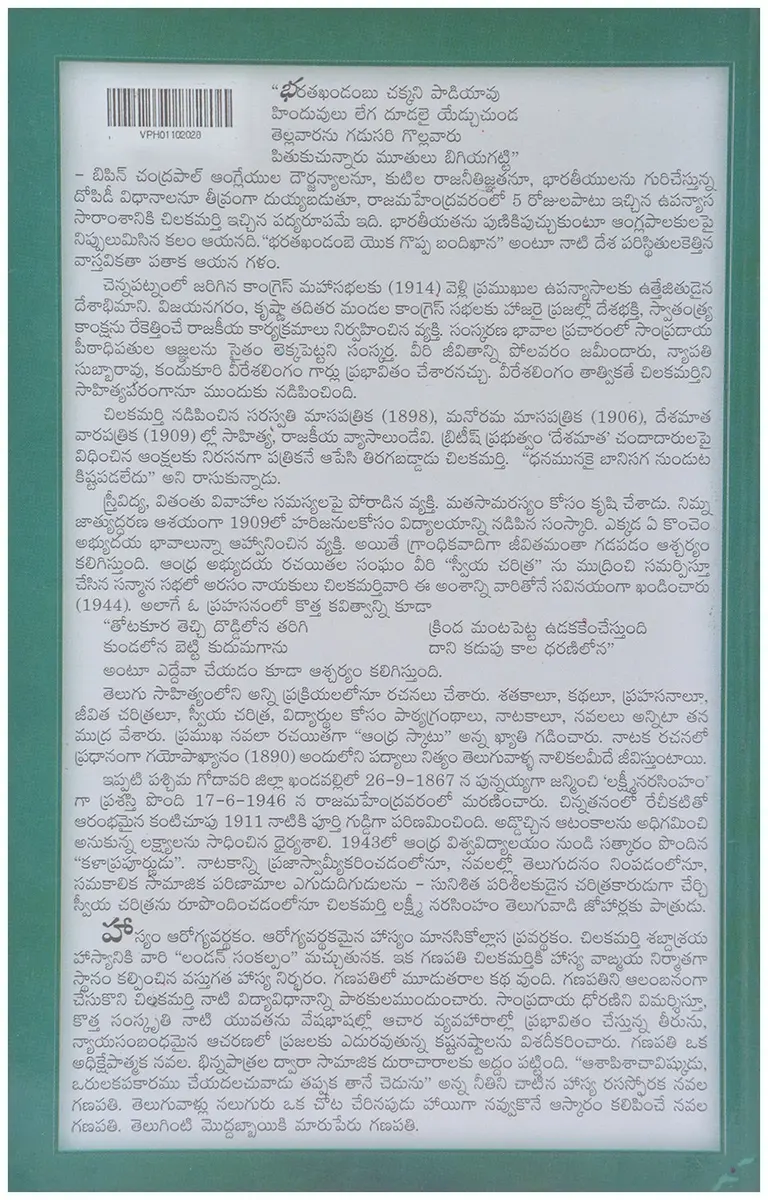 VPH01102028
“భరతఖండంబు చక్కని పాడియావు
హిందువులు లేగ దూడలై యేడ్చుచుండ
తెల్లవారను గడుసరి గొల్లవారు
పితుకుచున్నారు మూతులు బిగియగట్టి”
– బిపిన్ చంద్రపాల్ ఆంగ్లేయుల దౌర్జన్యాలనూ, కుటిల రాజనీతిజ్ఞతనూ, భారతీయులను గురిచేస్తున్న
దోపిడీ విధానాలనూ తీవ్రంగా దుయ్యబడుతూ, రాజమహేంద్రవరంలో 5 రోజులపాటు ఇచ్చిన ఉపన్యాస
సారాంశానికి చిలకమర్తి ఇచ్చిన పద్యరూపమే ఇది. భారతీయతను పుణికిపుచ్చుకుంటూ ఆంగ్లపాలకులపై
నిప్పులుమిసిన కలం ఆయనది. “భరతఖండంబె యొక గొప్ప బందిఖాన” అంటూ నాటి దేశ పరిస్థితులకెత్తిన
వాస్తవికతా పతాక ఆయన గళం.
చెన్నపట్నంలో జరిగిన కాంగ్రెస్ మహాసభలకు (1914) వెళ్లి ప్రముఖుల ఉపన్యాసాలకు ఉత్తేజితుడైన
దేశాభిమాని. విజయనగరం, కృష్ణా తదితర మండల కాంగ్రెస్ సభలకు హాజరై ప్రజల్లో దేశభక్తి, స్వాతంత్ర్య
కాంక్షను రేకెత్తించే రాజకీయ కార్యక్రమాలు నిర్వహించిన వ్యక్తి. సంస్కరణ భావాల ప్రచారంలో సాంప్రదాయ
పీఠాధిపతుల ఆజ్ఞలను సైతం లెక్కపెట్టని సంస్కర్త. వీరి జీవితాన్ని పోలవరం జమీందారు, న్యాపతి
సుబ్బారావు, కందుకూరి వీరేశలింగం గార్లు ప్రభావితం చేశారనచ్చు. వీరేశలింగం తాత్వికతే చిలకమర్తిని
సాహిత్యపరంగానూ ముందుకు నడిపించింది.
చిలకమర్తి నడిపించిన సరస్వతి మాసపత్రిక (1898), మనోరమ మాసపత్రిక (1906), దేశమాత
వారపత్రిక (1909) ల్లో సాహిత్య, రాజకీయ వ్యాసాలుండేవి. బ్రిటీష్ ప్రభుత్వం ‘దేశమాత’ చందాదారులపై
విధించిన ఆంక్షలకు నిరసనగా పత్రికనే ఆపేసి తిరగబడ్డాడు చిలకమర్తి. “ధనమునకై బానిసగ నుండుట
కిష్టపడలేదు” అని రాసుకున్నాడు.
స్త్రీవిద్య, వితంతు వివాహాల సమస్యలపై పోరాడిన వ్యక్తి. మతసామరస్యం కోసం కృషి చేశాడు. నిమ్న
జాత్యుద్ధరణ ఆశయంగా 1909లో హరిజనులకోసం విద్యాలయాన్ని నడిపిన సంస్కారి. ఎక్కడ ఏ కొంచెం
అభ్యుదయ భావాలున్నా ఆహ్వానించిన వ్యక్తి. అయితే గ్రాంథికవాదిగా జీవితమంతా గడపడం ఆశ్చర్యం
కలిగిస్తుంది. ఆంధ్ర అభ్యుదయ రచయితల సంఘం వీరి “స్వీయ చరిత్ర” ను ముద్రించి సమర్పిస్తూ
చేసిన సన్మాన సభలో అరసం నాయకులు చిలకమర్తివారి ఈ అంశాన్ని వారితోనే సవినయంగా ఖండించారు
(1944). అలాగే ఓ ప్రహసనంలో కొత్త కవిత్వాన్ని కూడా
“తోటకూర తెచ్చి దొడ్డిలోన తరిగి క్రింద మంటపెట్ట ఉడకకేంచేస్తుంది
కుండలోన బెట్టి కుదుమగాను దాని కడుపు కాల ధరణిలోన”
అంటూ ఎద్దేవా చేయడం కూడా ఆశ్చర్యం కలిగిస్తుంది.
తెలుగు సాహిత్యంలోని అన్ని ప్రక్రియలలోనూ రచనలు చేశారు. శతకాలూ, కథలూ, ప్రహసనాలూ,
జీవిత చరిత్రలూ, స్వీయ చరిత్ర, విద్యార్థుల కోసం పాఠ్యగ్రంథాలు, నాటకాలూ, నవలలు అన్నిటా తన
ముద్ర వేశారు. ప్రముఖ నవలా రచయితగా “ఆంధ్ర స్కాటు” అన్న ఖ్యాతి గడించారు. నాటక రచనలో
ప్రధానంగా గయోపాఖ్యానం (1890) అందులోని పద్యాలు నిత్యం తెలుగువాళ్ళ నాలికలమీదే జీవిస్తుంటాయి.
ఇప్పటి పశ్చిమ గోదావరి జిల్లా ఖండవల్లిలో 26-9-1867 న పున్నయ్యగా జన్మించి ‘లక్ష్మీనరసింహం’
గా ప్రశస్తి పొంది 17-6-1946 న రాజమహేంద్రవరంలో మరణించారు. చిన్నతనంలో రేచీకటితో
ఆరంభమైన కంటిచూపు 1911 నాటికి పూర్తి గుడ్డిగా పరిణమించింది. అడ్డొచ్చిన ఆటంకాలను అధిగమించి
అనుకున్న లక్ష్యాలను సాధించిన ధైర్యశాలి. 1943లో ఆంధ్ర విశ్వవిద్యాలయం నుండి సత్కారం పొందిన
“కళాప్రపూర్ణుడు”. నాటకాన్ని ప్రజాస్వామ్యీకరించడంలోనూ, నవలల్లో తెలుగుదనం నింపడంలోనూ,
సమకాలిక సామాజిక పరిణామాల ఎగుడుదిగుడులను – సునిశిత పరిశీలకుడైన చరిత్రకారుడుగా చేర్చి
స్వీయ చరిత్రను రూపొందించడంలోనూ చిలకమర్తి లక్ష్మీ నరసింహం తెలుగువాడి జోహార్లకు పాత్రుడు.
హాస్యం ఆరోగ్యవర్థకం. ఆరోగ్యవర్థకమైన హాస్యం మానసికోల్లాస ప్రవర్థకం. చిలకమర్తి శబ్దాశ్రయ
హాస్యానికి వారి “లండన్ సంకల్పం” మచ్చుతునక. ఇక గణపతి చిలకమర్తికి హాస్య వాఙ్మయ నిర్మాతగా
స్థానం కల్పించిన వస్తుగత హాస్య నిర్భరం. గణపతిలో మూడుతరాల కథ వుంది. గణపతిని ఆలంబనంగా
చేసుకొని చిలకమర్తి నాటి విద్యావిధానాన్ని పాఠకులముందుంచారు. సాంప్రదాయ ధోరణిని విమర్శిస్తూ,
కొత్త సంస్కృతి నాటి యువతను వేషభాషల్లో ఆచార వ్యవహారాల్లో ప్రభావితం చేస్తున్న తీరును,
న్యాయసంబంధమైన ఆచరణలో ప్రజలకు ఎదురవుతున్న కష్టనష్టాలను విశదీకరించారు. గణపతి ఒక
అధిక్షేపాత్మక నవల. భిన్నపాత్రల ద్వారా సామాజిక దురాచారాలకు అద్దం పట్టింది. “ఆశాపిశాచావిష్కుడు,
ఒరులకపకారము చేయదలచువాడు తప్పక తానే చెడును” అన్న నీతిని చాటిన హాస్య రసస్ఫోరక నవల
గణపతి. తెలుగువాళ్లు నలుగురు ఒక చోట చేరినపుడు హాయిగా నవ్వుకొనే ఆస్కారం కలిపించే నవల
గణపతి. తెలుగింటి మొద్దబ్బాయికి మారుపేరు గణపతి.